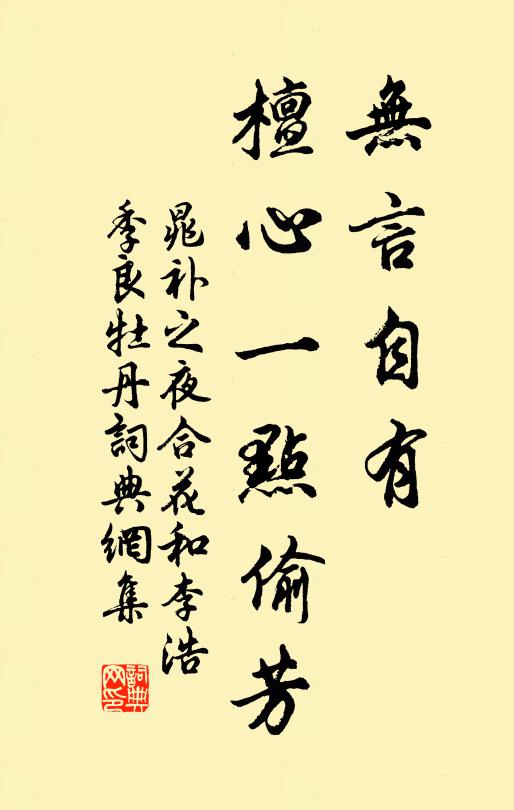 無言自有
檀心一點偷芳
晁补之夜合花和李浩
季良牡丹詞典網集
詞典
网印